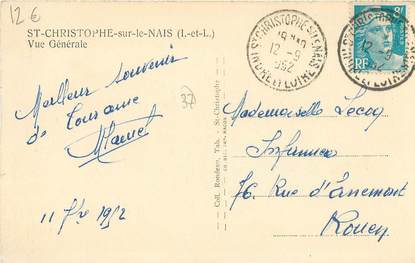 12 €
ST-CHRISTOPHE-sur-le-NAIS (I.-et-L.)
Vue Générale
Meilleur souvenir
de Touraine
11 7bre 1952
37
Coll. Rondeau, Tab. - St-Christophe
ST CHRISTOPHE S LE NAIS
12-9
1952
INDRE ET LOIRE
12-9
RF
8F
Mademoiselle Lecoq
Infirmière
76 Rue d'Ernemont
Rouen